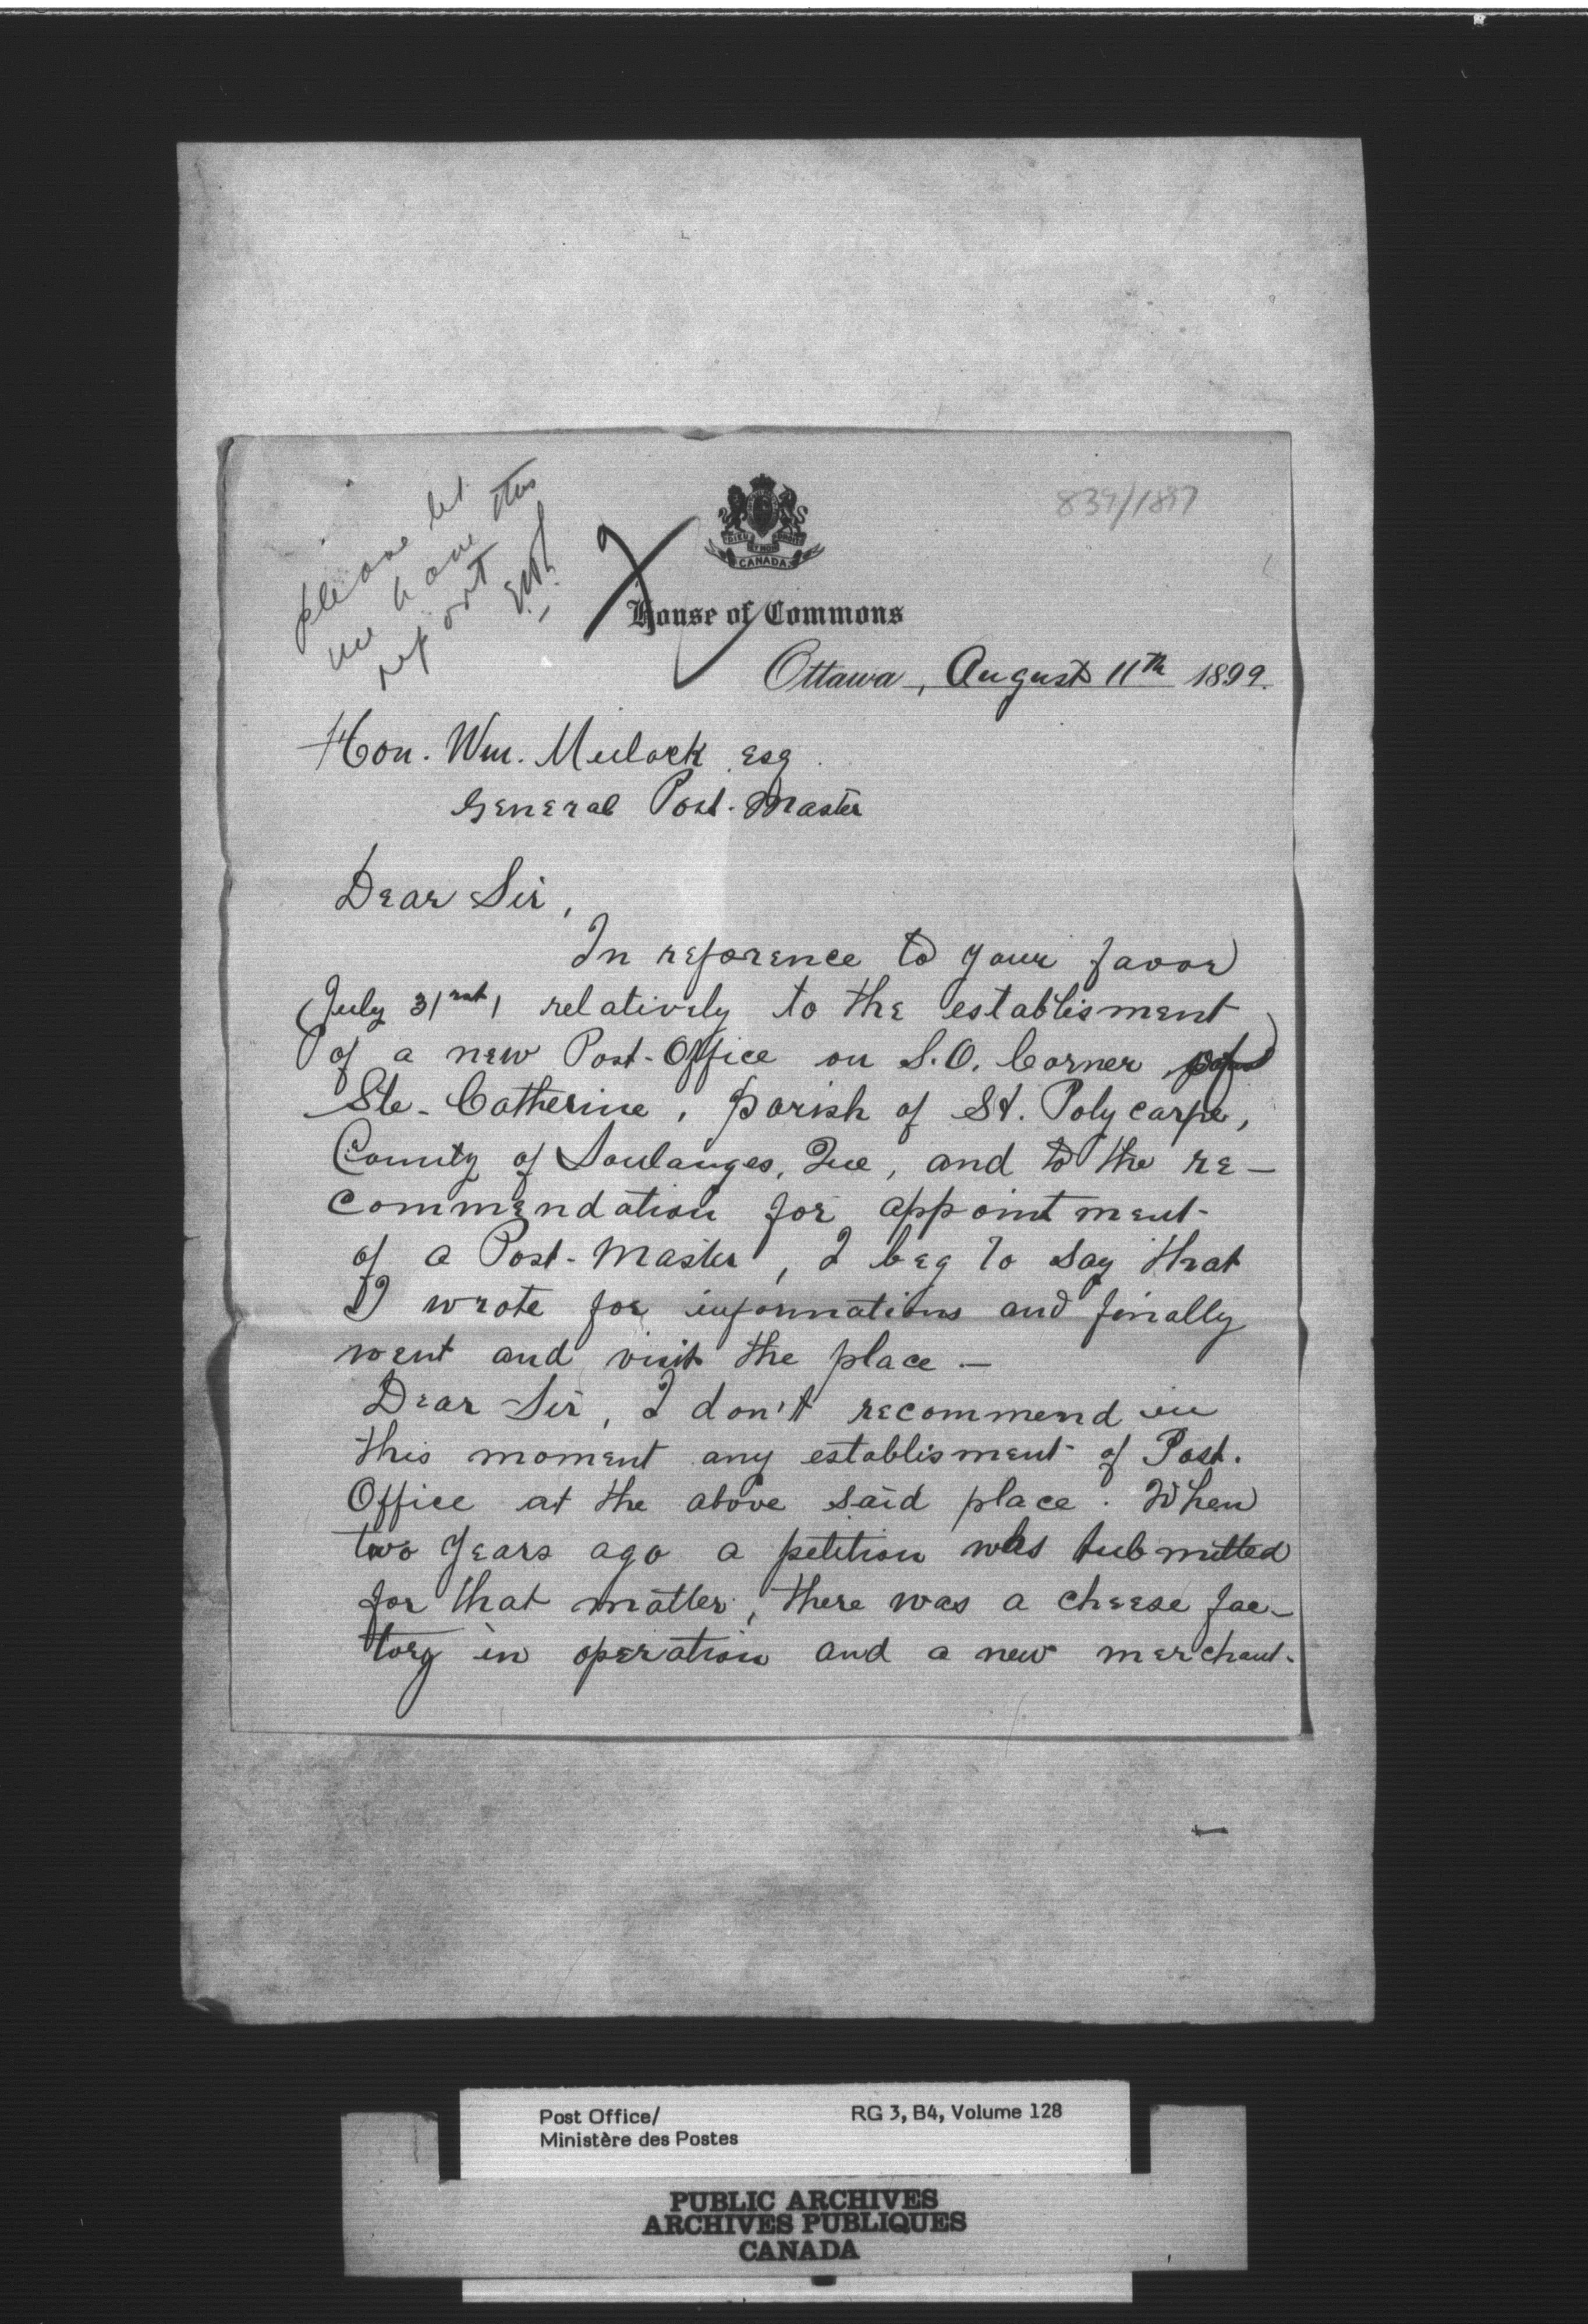 please let
me have this
report
839/1897
DIEU ET MON DROIT
CANADA
House of Commons
Ottawa, August 11th 1899.
Hon. Wm. Mulock esq.
General Post-Master
Dear Sir,
In reference to your favor
July 31rst, relatively to the establisment
of a new Post-Office on S.O. Corner
Ste-Catherine, parish of St. Polycarpe,
County of Soulanges, Que, and to the re-
commendation for appointment
of a Post-Master, I beg to say that
I wrote for informations and finally
went and visit the place —
Dear Sir, I don't recommend in
this moment any establisment of Post-
Office at the above said place. When
two years ago a petition was submitted
for that matter, there was a cheese fac-
tory in operation and a new merchant.
Post Office/
Ministère des Postes
RG 3, B4, Volume 128
PUBLIC ARCHIVES
ARCHIVES PUBLIQUES
CANADA